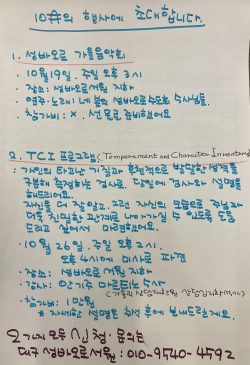 10月의 행사에 초대합니다.
1. 성바오로 가을음악회
· 10월 19일. 주일 오후 2시
· 장소: 성바오로서원 지하
· 연주·노래: 네 분의 성바오로수도회 수사님들.
· 참가비: x. 선물로 준비했어요
2. TCI 프로그램 (Temperament and Character Inventory)
· 개인의 타고난 기질과 후천적으로 발달한 성격을
구분해 측정하는 검사로, 당일에 검사와 설명을
해드려요.
자신을 더 잘 알고, 그런 자신의 모습으로 주님과
더욱 친밀한 관계로 나아가실 수 있도록 도움
드리고 싶어서 마련했어요.
· 10월 26일. 주일 오후 2시.
오후 4시에 미사로 파견
· 장소: 성바오로서원 지하
· 강사: 안기주 마르티노 수사
· 참가비: 1만원
* 자세한 설명은 추석 후에 보내드릴게요.
2가지 모두 신청·문의는
대구 성바오로서원: 010-9540-4592